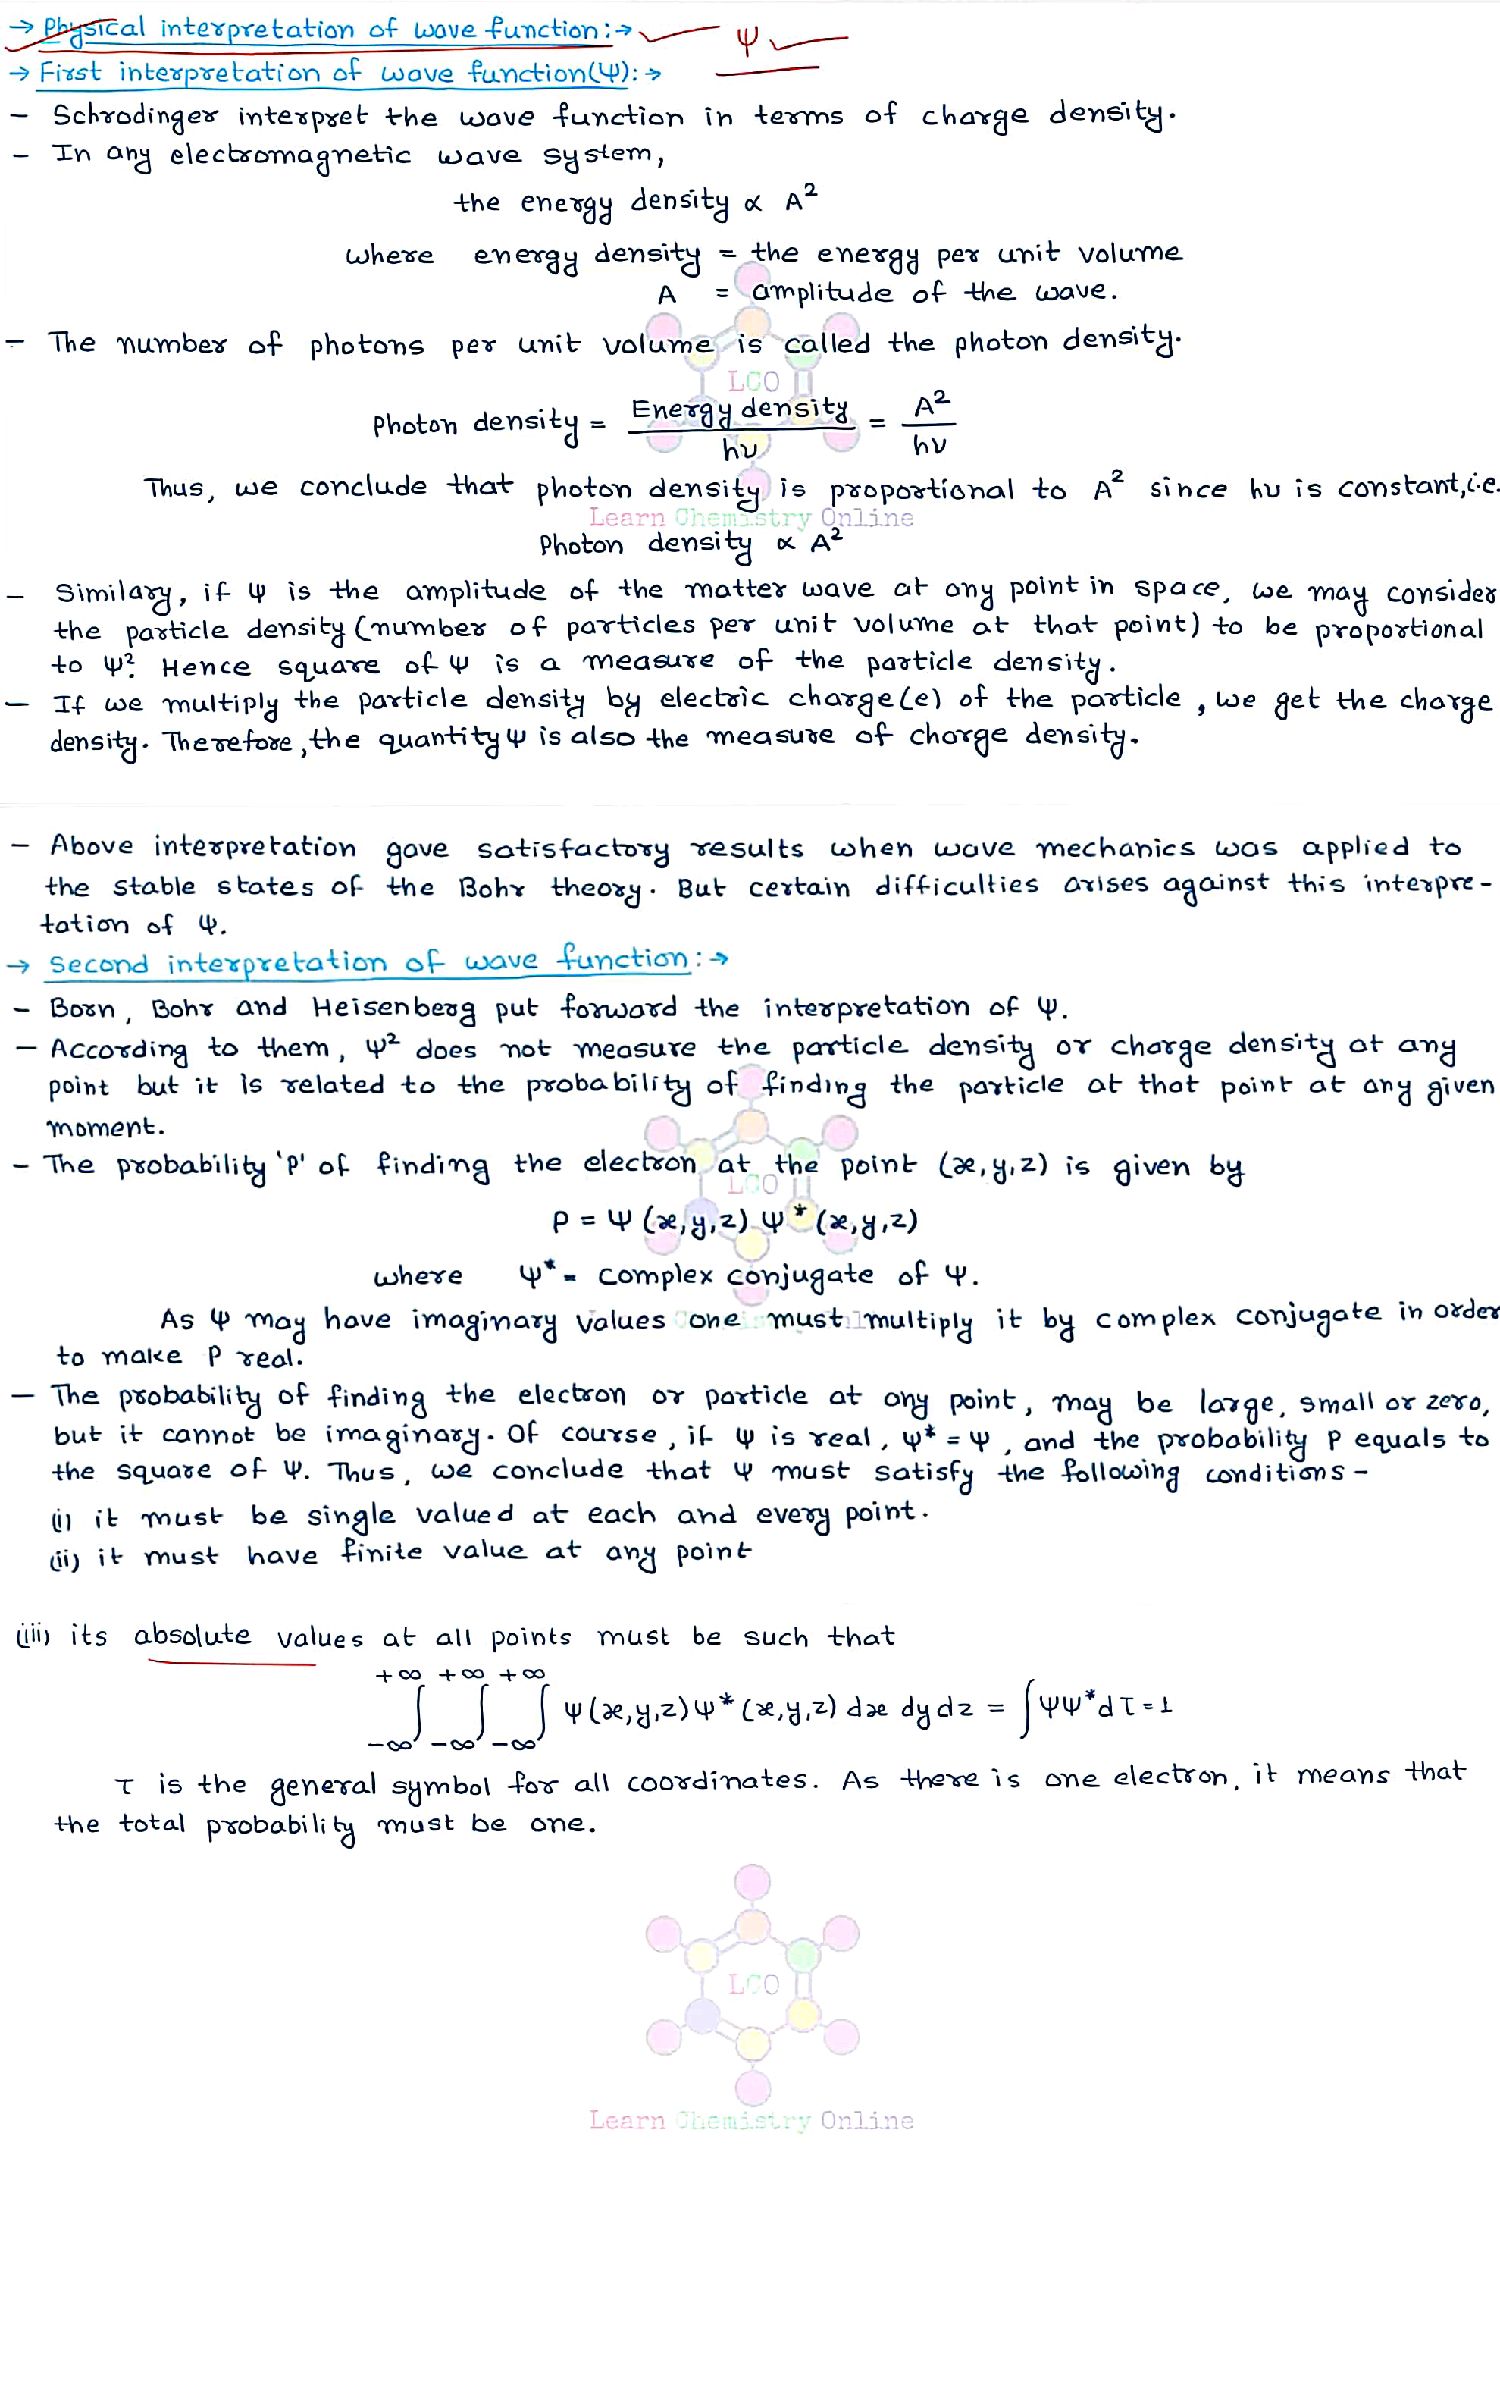 → Physical interpretation of wave function:→ Ψ
→ First interpretation of wave function(Ψ):→
– Schrodinger interpret the wave function in terms of charge density.
– In any electromagnetic wave system,
the energy density ∝ A²
where energy density = the energy per unit volume
A = amplitude of the wave.
– The number of photons per unit volume is called the photon density.
LCO
Photon density = Energy density / hυ = A² / hυ
Thus, we conclude that photon density is proportional to A² since hυ is constant, i.e.
Learn Chemistry Online
Photon density ∝ A²
– Similary, if Ψ is the amplitude of the matter wave at any point in space, we may consider
the particle density (number of particles per unit volume at that point) to be proportional
to Ψ². Hence square of Ψ is a measure of the particle density.
– If we multiply the particle density by electric charge(e) of the particle, we get the charge
density. Therefore, the quantity Ψ is also the measure of charge density.
– Above interpretation gave satisfactory results when wave mechanics was applied to
the stable states of the Bohr theory. But certain difficulties arises against this interpre-
tation of Ψ.
→ Second interpretation of wave function:→
– Born, Bohr and Heisenberg put forward the interpretation of Ψ.
– According to them, Ψ² does not measure the particle density or charge density at any
point but it is related to the probability of finding the particle at that point at any given
moment.
– The probability 'P' of finding the electron at the point (x,y,z) is given by
LCO
P = Ψ (x,y,z) Ψ* (x,y,z)
where Ψ* = complex conjugate of Ψ.
As Ψ may have imaginary values one must multiply it by complex conjugate in order
to make P real.
– The probability of finding the electron or particle at any point, may be large, small or zero,
but it cannot be imaginary. Of course, if Ψ is real, Ψ* = Ψ, and the probability P equals to
the square of Ψ. Thus, we conclude that Ψ must satisfy the following conditions –
(i) it must be single valued at each and every point.
(ii) it must have finite value at any point
(iii) its absolute values at all points must be such that
+∞ +∞ +∞
∫ ∫ ∫ Ψ(x,y,z) Ψ* (x,y,z) dx dy dz = ∫ΨΨ*dτ = 1
-∞ -∞ -∞
τ is the general symbol for all coordinates. As there is one electron, it means that
the total probability must be one.
LCO
Learn Chemistry Online